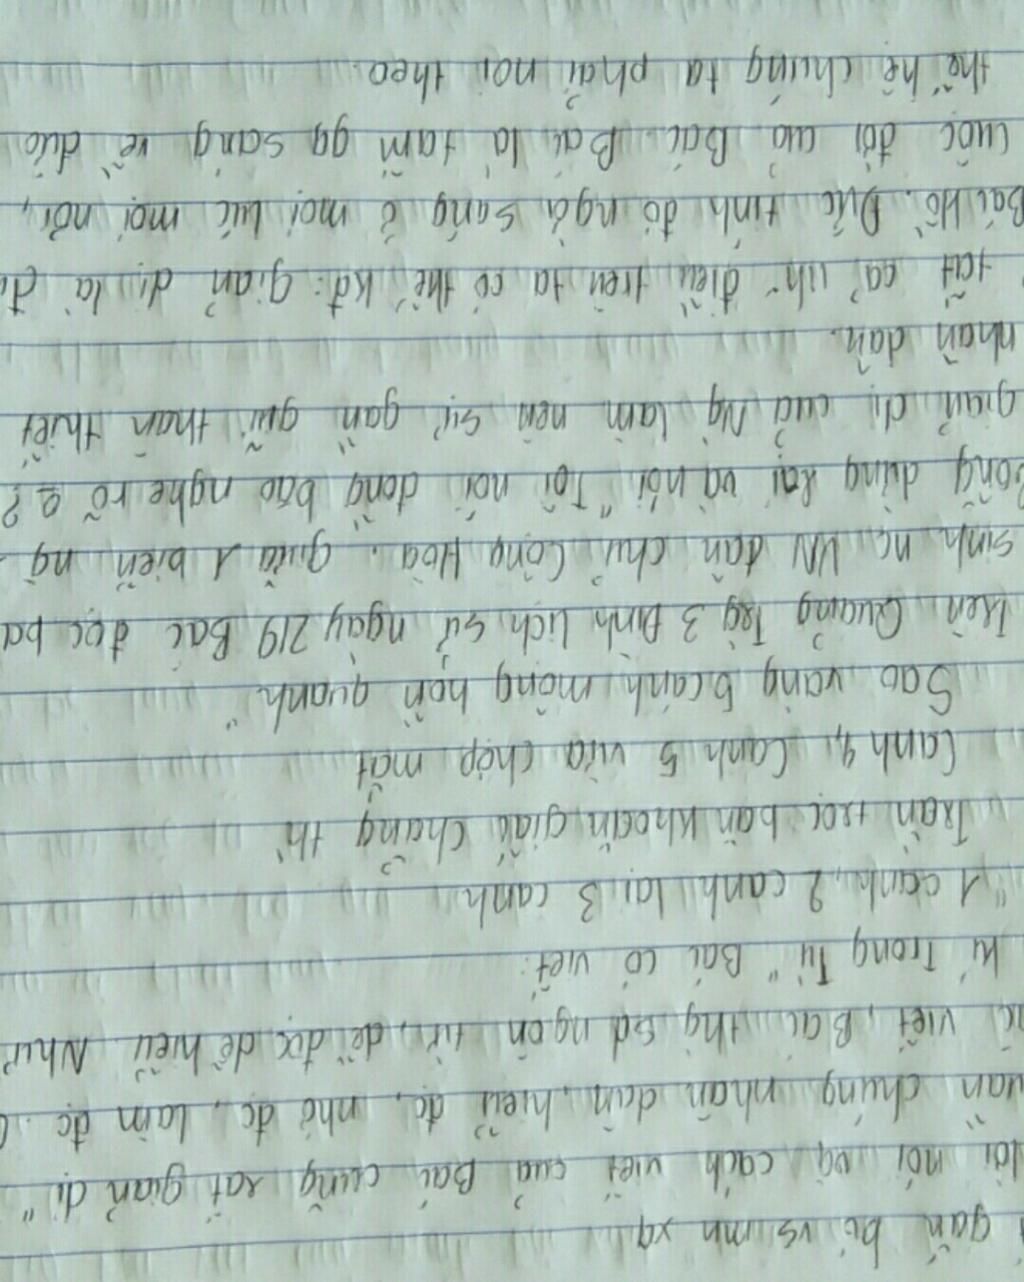 gần bó vs mn xq
lời nói và cách viết của Bác cũng rất giản dị "
chúng nhân dân hiểu đc, nhớ đc, làm đc.
viết, Bác thg sd ngôn từ, dễ đọc dễ hiểu Như
kí Trong Tù" Bác có viết:
"1 canh, 2 canh lại 3 canh
Trằn trọc băn khoăn, giấc chẳng th'
Canh 4, Canh 5 vừa chợp mắt
Sao vàng 5 cánh mộng hồn quanh"
trên Quảng Trg 3 Đình lịch sử ngày 2/9 Bác đọc bả
sinh nc VN dân chủ Cộng Hòa. giữa 1 biển ng
dừng lại và hỏi "Tôi nói đồng bào nghe rõ k?
giản dị của Ng làm nên sự gần gũi thân thiết
nhân dân.
tất cả nh~ điều trên ta có thể kđ: giản dị là đ
Bác Hồ. Đức tính đó ngời sáng ở mọi lúc mọi nơi,
cuộc đời của Bác. Bác là tấm gg sáng về đức
thế hệ chúng ta phải noi theo.